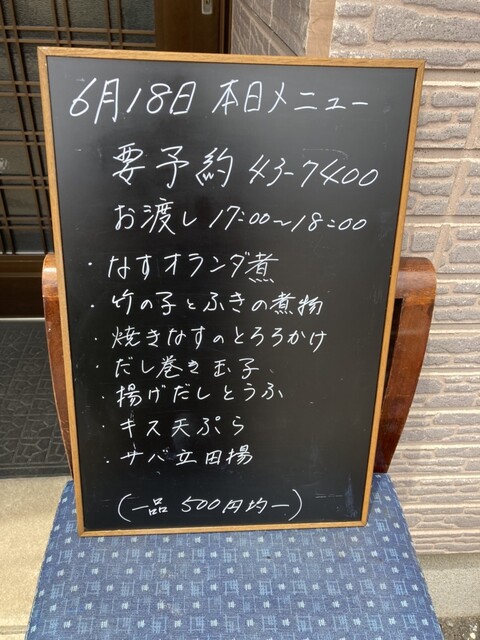 6月18日 本日メニュー
要予約 43-7400
お渡し 17:00~18:00
・なすオランダ煮
・竹の子とふきの煮物
・焼きなすのとろろかけ
・だし巻き玉子
・揚げだしとうふ
・キス天ぷら
・サバ立田揚
(一品 500円均一)